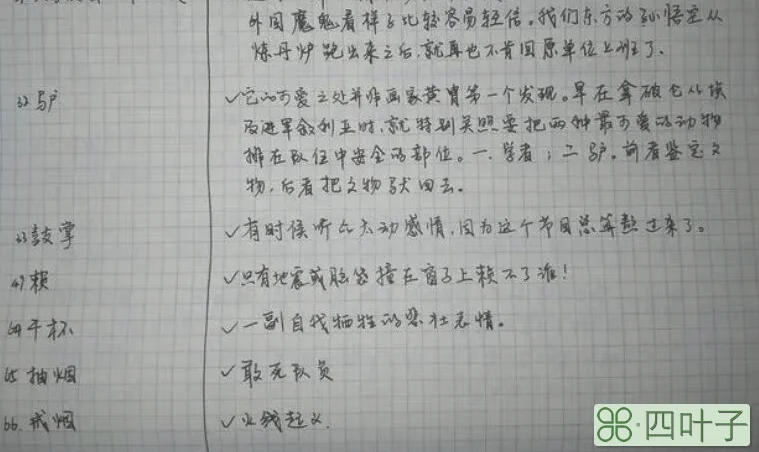 外国魔鬼看样子比较容易轻信。我们东方的孙悟空从
炼丹炉跑出来之后,就再也不肯回原单位上班了。
驴
✓它的可爱之处并非画家黄胄第一个发现。早在拿破仑从埃
及进军叙利亚时,就特别关照要把两种最可爱的动物
排在队伍中安全的部位。一.学者;二驴。前者鉴定文
物,后者把文物驮回去。
鼓掌
✓有时候听众大动感情,因为这个节目总算熬过来了。
赖
✓只有地震或脑袋撞在窗子上赖不了谁!
64干杯
✓一副自我牺牲的悲壮表情。
65抽烟
✓敢死队员
66.戒烟
✓起义.
四叶子